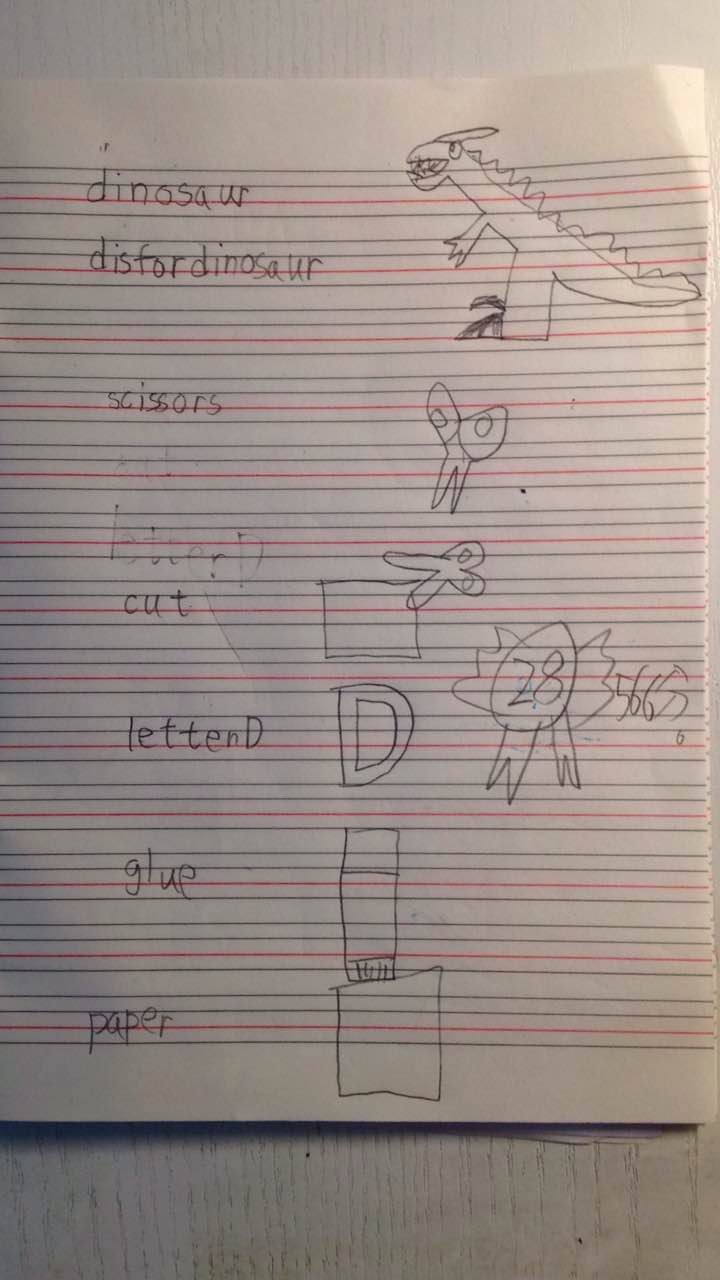 dinosaur
disfordinosaur
scissors
letterD
cut
28
letterD
D
glue
paper